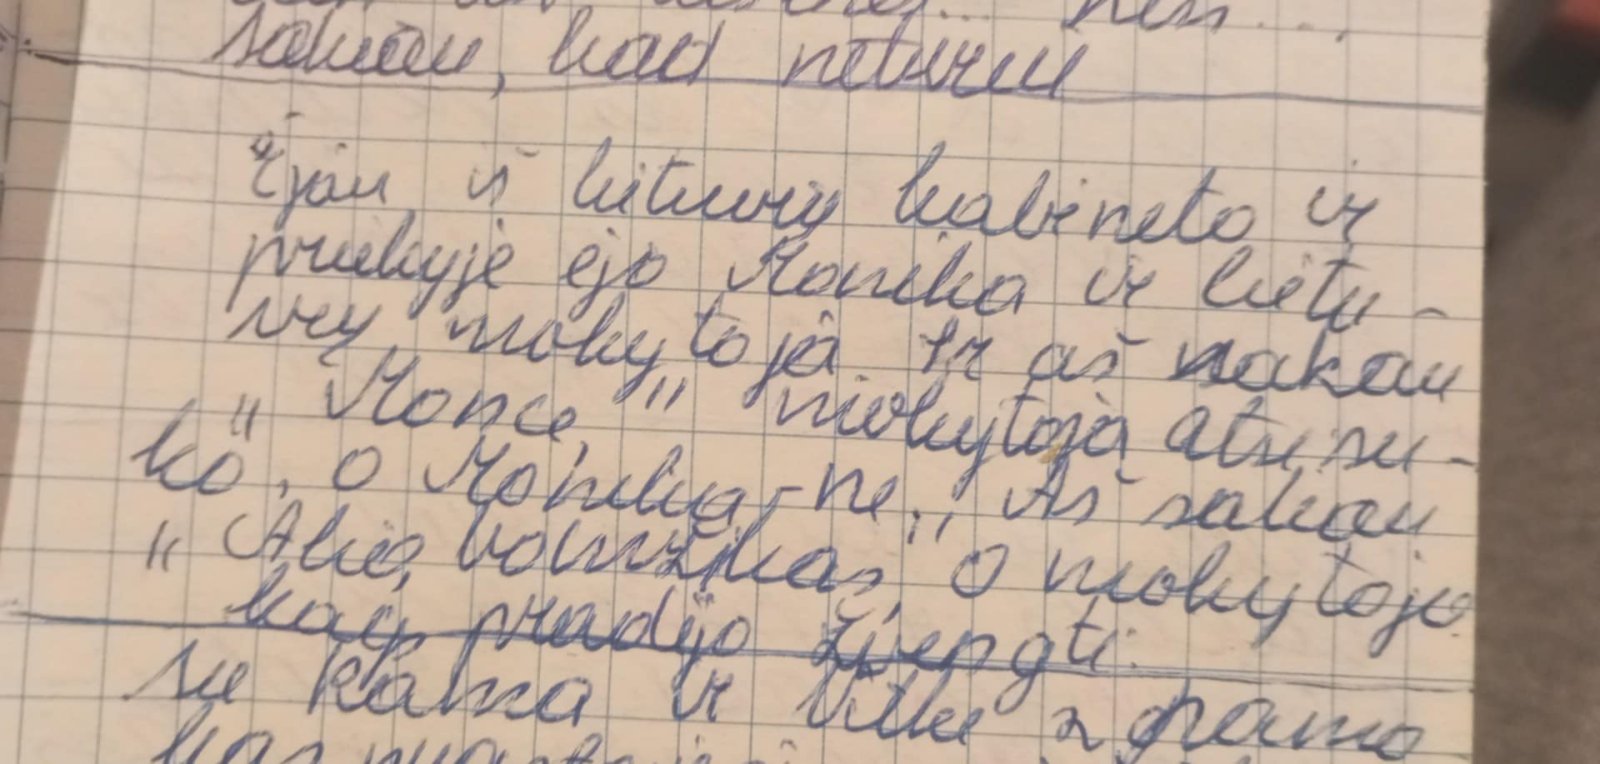 sakau, kad neturiu
Ėjau iš lietuvių kabineto ir
priekyje ėjo Monika ir lietu-
vių mokytoja. Ir aš sakau
"Monce," mokytoja atsisu-
ko, o Monika - ne." Aš sakau
"Akie, o mokytoja
kaip pradėjo žvengti.
su Kama ir Vilke 2 pamo